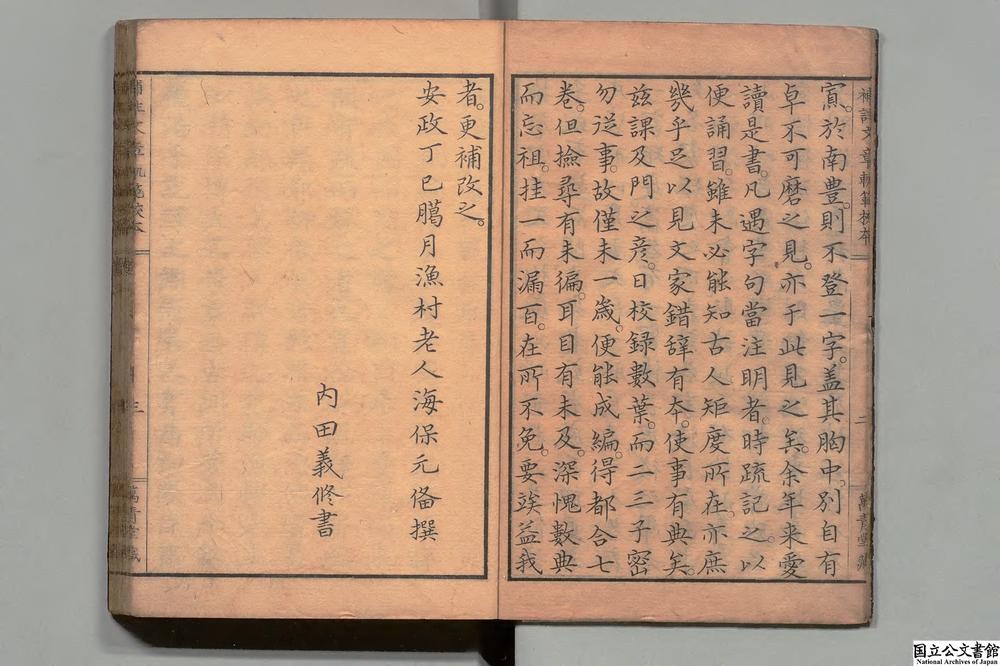 補註文章軌範校本
二
寘。於南豊。則不登一字。盖其胸中。別自有
卓不可磨之見。亦于此見之矣。余年来愛
讀是書。凡遇字句當注明者。時疏記之。以
便誦習。雖未必能知古人矩度所在。亦庶
幾乎足以見文家錯辞有夲。使事有典矣。
玆課及門之彦。日校録數葉。而二三子密
勿従事。故僅未一歳。便能成編。得都合七
卷。但撿尋有未徧。耳目有未及。深愧數典
而忘祖。挂一而漏百。在所不免。要竢益我
者。更補改之。
安政丁巳臈月漁村老人海保元俻撰
内田義脩書
三
国立公文書館
National Archives of Japan